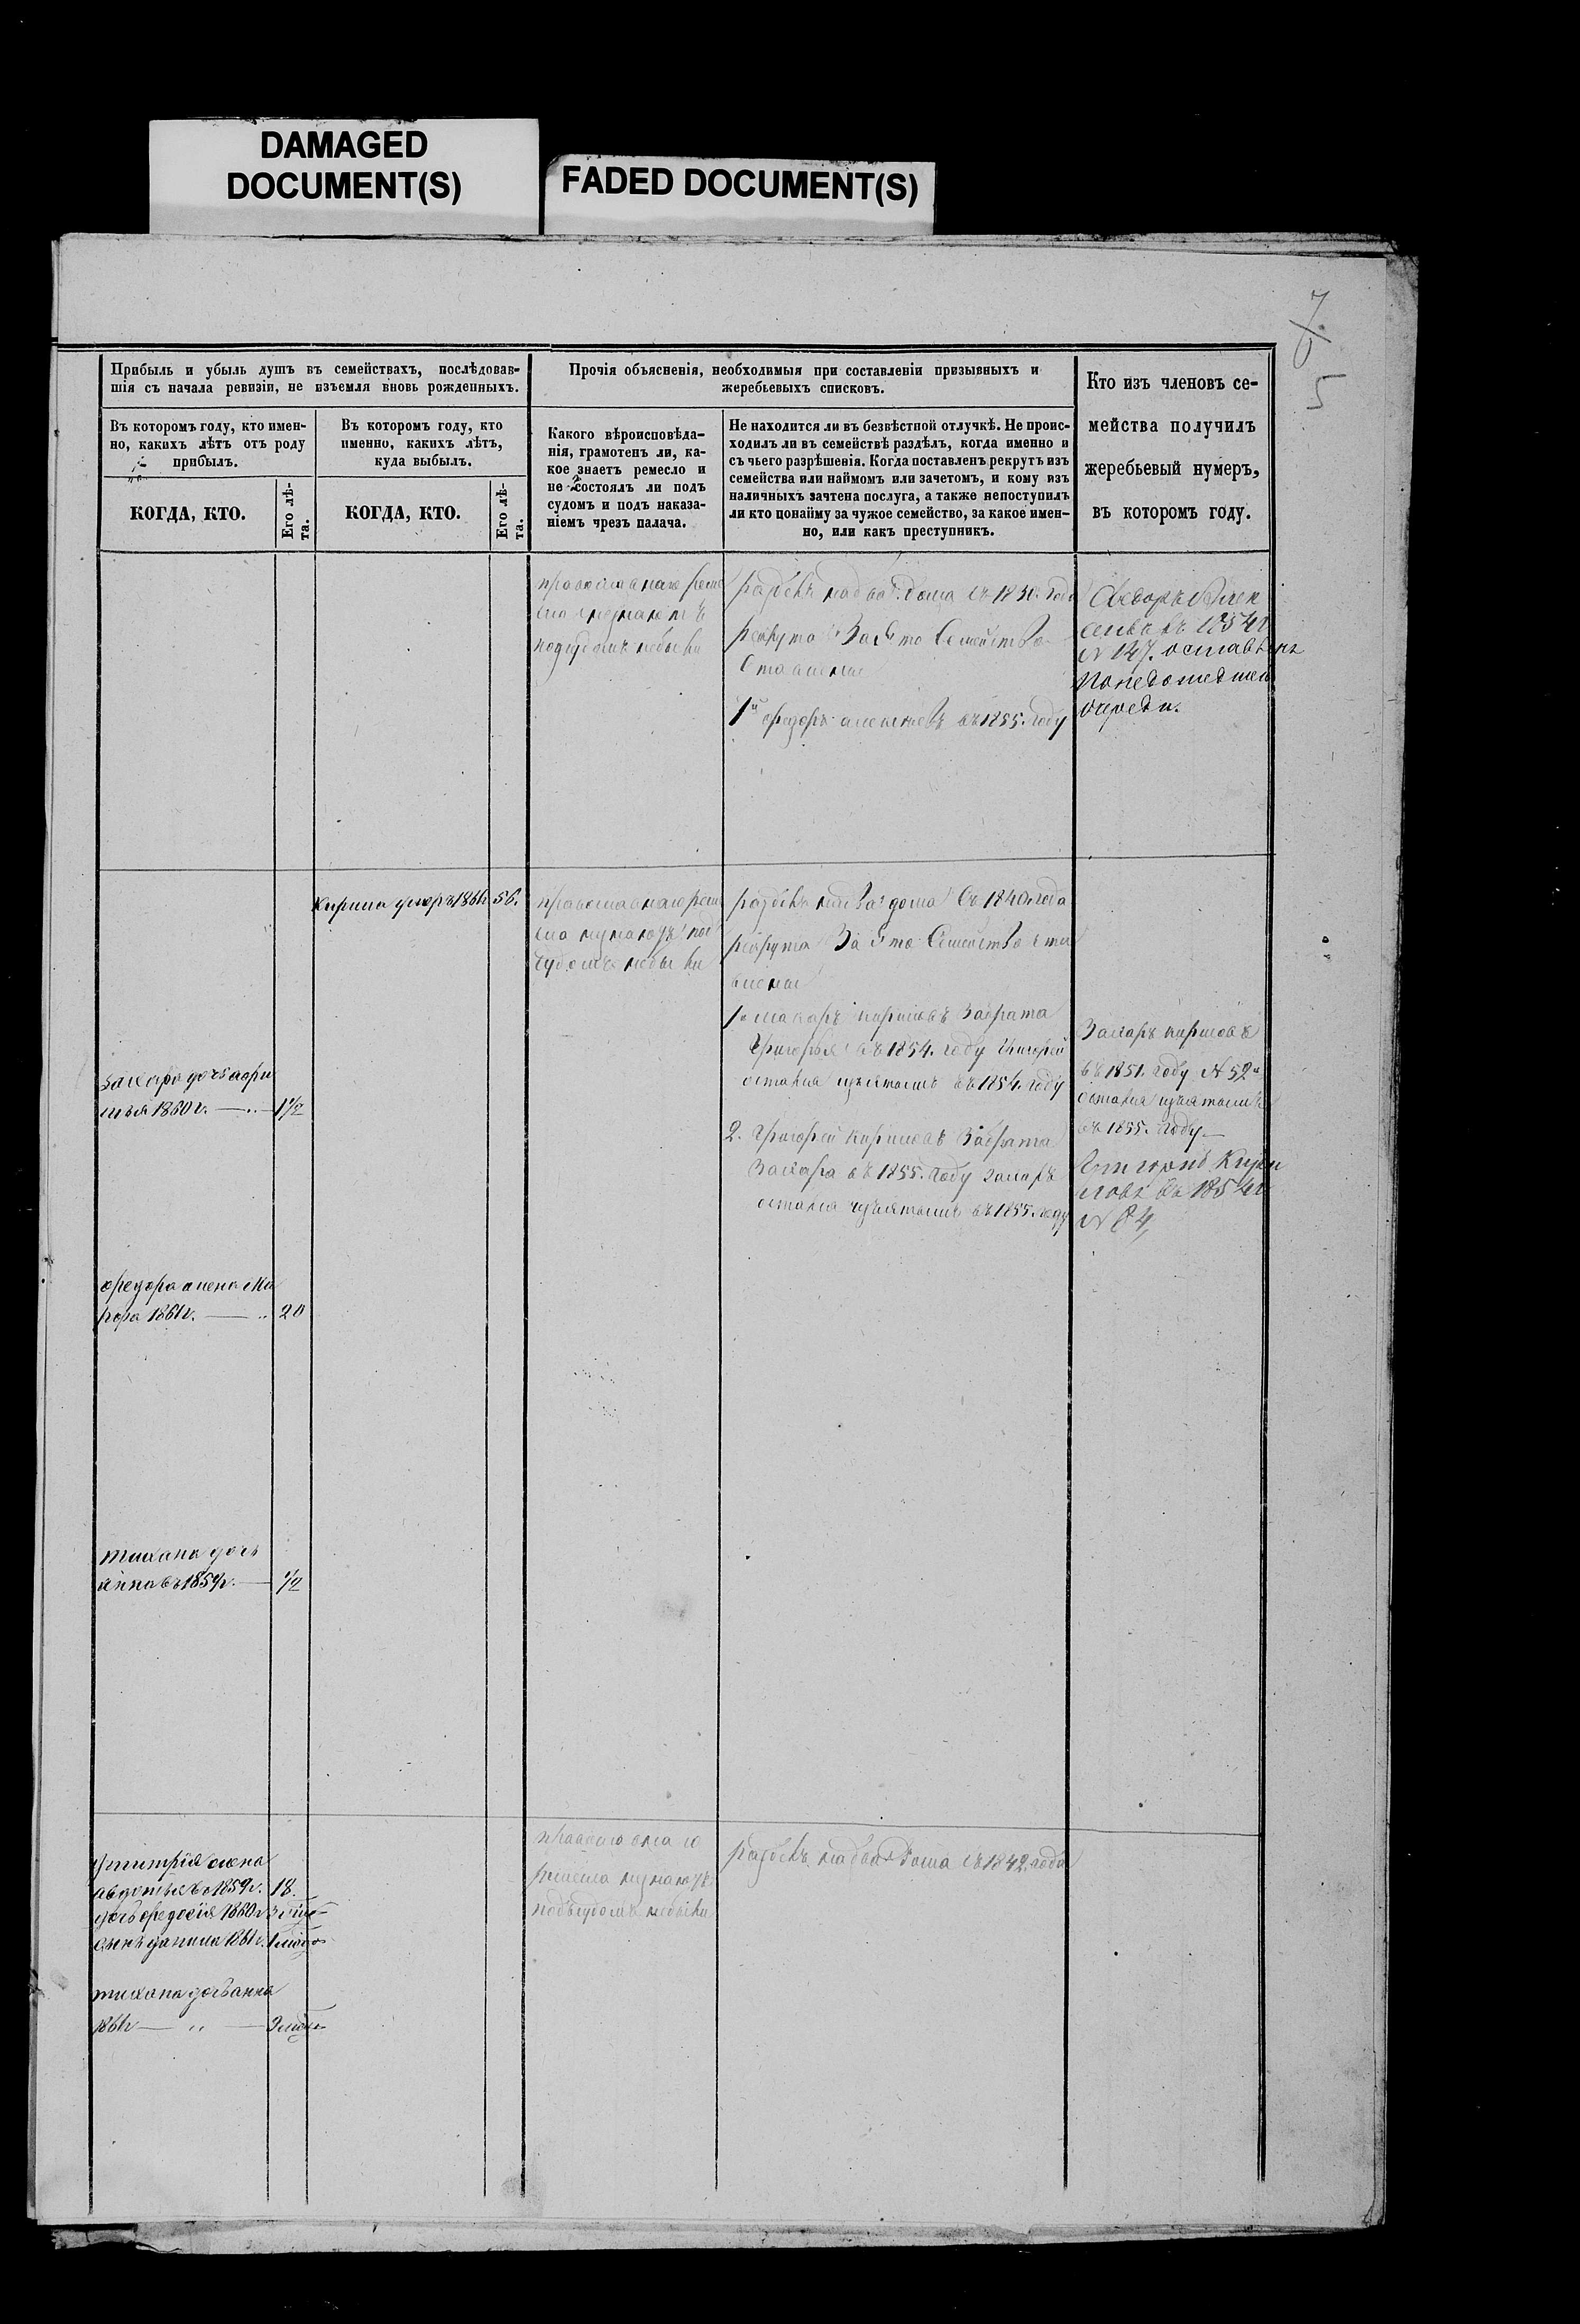 DAMAGED
DOCUMENT(S)
FADED DOCUMENT(S)
7
5
Прибыль и убыль душъ въ семействахъ, послѣдовав-
шія съ начала ревизіи, не изъемля вновь рожденныхъ.
Прочія объясненія, необходимыя при составленіи призывныхъ и
жеребьевыхъ списковъ.
Кто изъ членовъ се-
мейства получилъ
жеребьевый нумеръ,
въ которомъ году.
Въ которомъ году, кто имен-
но, какихъ лѣтъ отъ роду
прибылъ.
Въ которомъ году, кто
именно, какихъ лѣтъ,
куда выбылъ.
Какого вѣроисповѣда-
нія, грамотенъ ли, ка-
кое знаетъ ремесло и
не состоялъ ли подъ
судомъ и подъ наказа-
ніемъ чрезъ палача.
Не находится ли въ безвѣстной отлучкѣ. Не проис-
ходилъ ли въ семействѣ раздѣлъ, когда именно и
съ чьего разрѣшенія. Когда поставленъ рекрутъ изъ
семейства или наймомъ или зачетомъ, и кому изъ
наличныхъ зачтена послуга, а также непоступилъ
ли кто понайму за чужое семейство, за какое имен-
но, или какъ преступникъ.
КОГДА, КТО.
Его лѣ-
та.
КОГДА, КТО.
Его лѣ-
та.
православнаго реме
сла незнаютъ
подсудомъ небыли
раздѣлъ надва дома съ 1830. года
рекрута За Это Семейство
Ставлены
1й федоръ алексѣевъ въ 1855. году
Федоръ Алек
сеевъ въ 1854г
N 147. оставленъ
понедошедшей
очреди.
Кирила умеръ 1861г 56.
православнаго реме
сла незнаютъ под
судомъ небыли
раздѣлъ надва дома Съ 1840. года
рекрута За Это Семейство ста
влены
1й макаръ кириловъ Забрата
Григорья въ 1854. году Григорей
остался изъятымъ въ 1854. году
2. Григорей кириловъ Забрата
Захара въ 1855. году захаръ
остался изъятымъ въ 1855. году
Захаръ кириловъ
въ 1851. году N 52й
остался изъятымъ
въ 1855. году
Григорий Кири
ловъ въ 1854г
N 84,
захара дочь
1860 г. 1½
федора жена Ма
1861г. 20
тихана дочь
анна въ 1859г. ½
православнаго
ремесла незнаютъ
подъсудомъ небыли
раздѣлъ надва дома съ 1842. года
дмитрія жена
авдотья въ 1859г. 18.
дочь федосія 1860г
сынъ данила 1861г.
тихана дочь анна
1861г